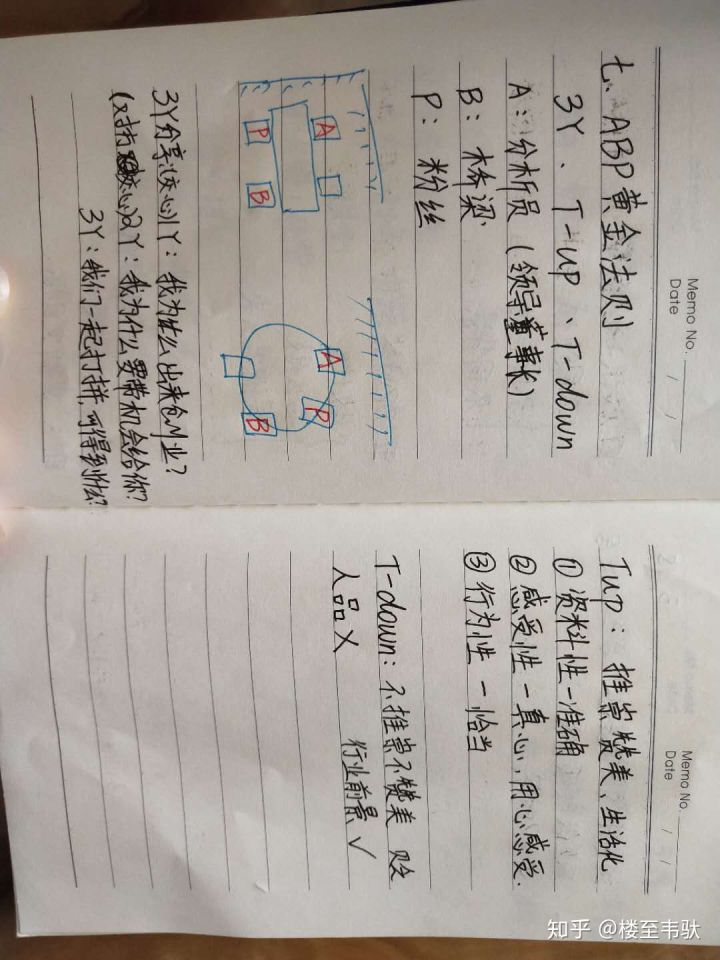 Memo No.
Date / /
七、ABP黄金法则
3Y、T-up、T-down
A：分析员（领导董事长）
B：桥梁
P：粉丝
A
P
B
A
P
B
3Y分享(交心)1Y：我为什么出来创业？
(对打交心)2Y：我为什么要带机会给你？
3Y：我们一起打拼，可得到什么？
Memo No.
Date / /
Tup：推崇赞美、生活化
①资料性－准确
②感受性－真心，用心感受.
③行为性－恰当
T-down：不推崇不赞美 贬
人品× 行业前景√
知乎 @楼至韦驮